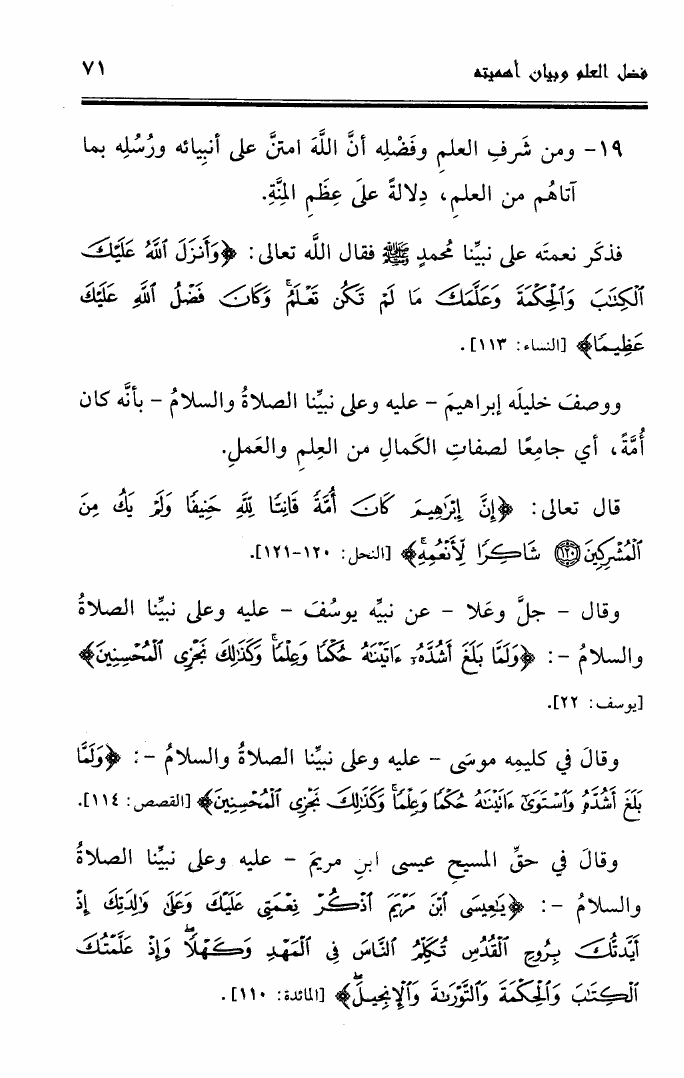 فضل العلم وبيان أهميته ٧١
١٩- ومن شَرفِ العلمِ وفَضْلِه أنَّ اللَّهَ امتنَّ على أنبِيائه ورُسُلِه بما
آتاهُم من العلمِ، دِلالةً علىَ عِظَمِ المِنَّةِ.
فذكَر نعمتَه على نبيِّنا مُحمدٍ ﷺ فقال اللَّه تعالى: ﴿وَأَنزَلَ ٱللَّهُ عَلَيْكَ
ٱلْكِتَٰبَ وَٱلْحِكْمَةَ وَعَلَّمَكَ مَا لَمْ تَكُن تَعْلَمُ ۚ وَكَانَ فَضْلُ ٱللَّهِ عَلَيْكَ
عَظِيمًا﴾ [النساء: ١١٣].
ووصفَ خليلَه إبراهيمَ - عليه وعلى نبيِّنا الصلاةُ والسلامُ - بأنَّه كان
أُمَّةً، أي جامِعًا لصفاتِ الكَمالِ من العِلمِ والعَملِ.
قال تعالى: ﴿إِنَّ إِبْرَٰهِيمَ كَانَ أُمَّةً قَانِتًا لِّلَّهِ حَنِيفًا وَلَمْ يَكُ مِنَ
ٱلْمُشْرِكِينَ ١٢٠ شَاكِرًا لِّأَنْعُمِهِ ۚ﴾ [النحل: ١٢٠-١٢١].
وقال - جلَّ وعَلا - عن نبيِّه يوسُفَ - عليه وعلى نبيِّنا الصلاةُ
والسلامُ -: ﴿وَلَمَّا بَلَغَ أَشُدَّهُۥٓ ءَاتَيْنَٰهُ حُكْمًا وَعِلْمًا ۚ وَكَذَٰلِكَ نَجْزِى ٱلْمُحْسِنِينَ﴾
[يوسف: ٢٢].
وقالَ في كليمِه موسَى - عليه وعلى نبيِّنا الصلاةُ والسلامُ -: ﴿وَلَمَّا
بَلَغَ أَشُدَّهُۥ وَٱسْتَوَىٰٓ ءَاتَيْنَٰهُ حُكْمًا وَعِلْمًا ۚ وَكَذَٰلِكَ نَجْزِى ٱلْمُحْسِنِينَ﴾ [القصص: ١١٤].
وقالَ في حقِّ المسيحِ عيسى ابنِ مريمَ - عليه وعلى نبيِّنا الصلاةُ
والسلامُ -: ﴿يَٰعِيسَى ٱبْنَ مَرْيَمَ ٱذْكُرْ نِعْمَتِى عَلَيْكَ وَعَلَىٰ وَٰلِدَتِكَ إِذْ
أَيَّدتُّكَ بِرُوحِ ٱلْقُدُسِ تُكَلِّمُ ٱلنَّاسَ فِى ٱلْمَهْدِ وَكَهْلًا ۖ وَإِذْ عَلَّمْتُكَ
ٱلْكِتَٰبَ وَٱلْحِكْمَةَ وَٱلتَّوْرَىٰةَ وَٱلْإِنجِيلَ ۖ﴾ [المائدة: ١١٠].